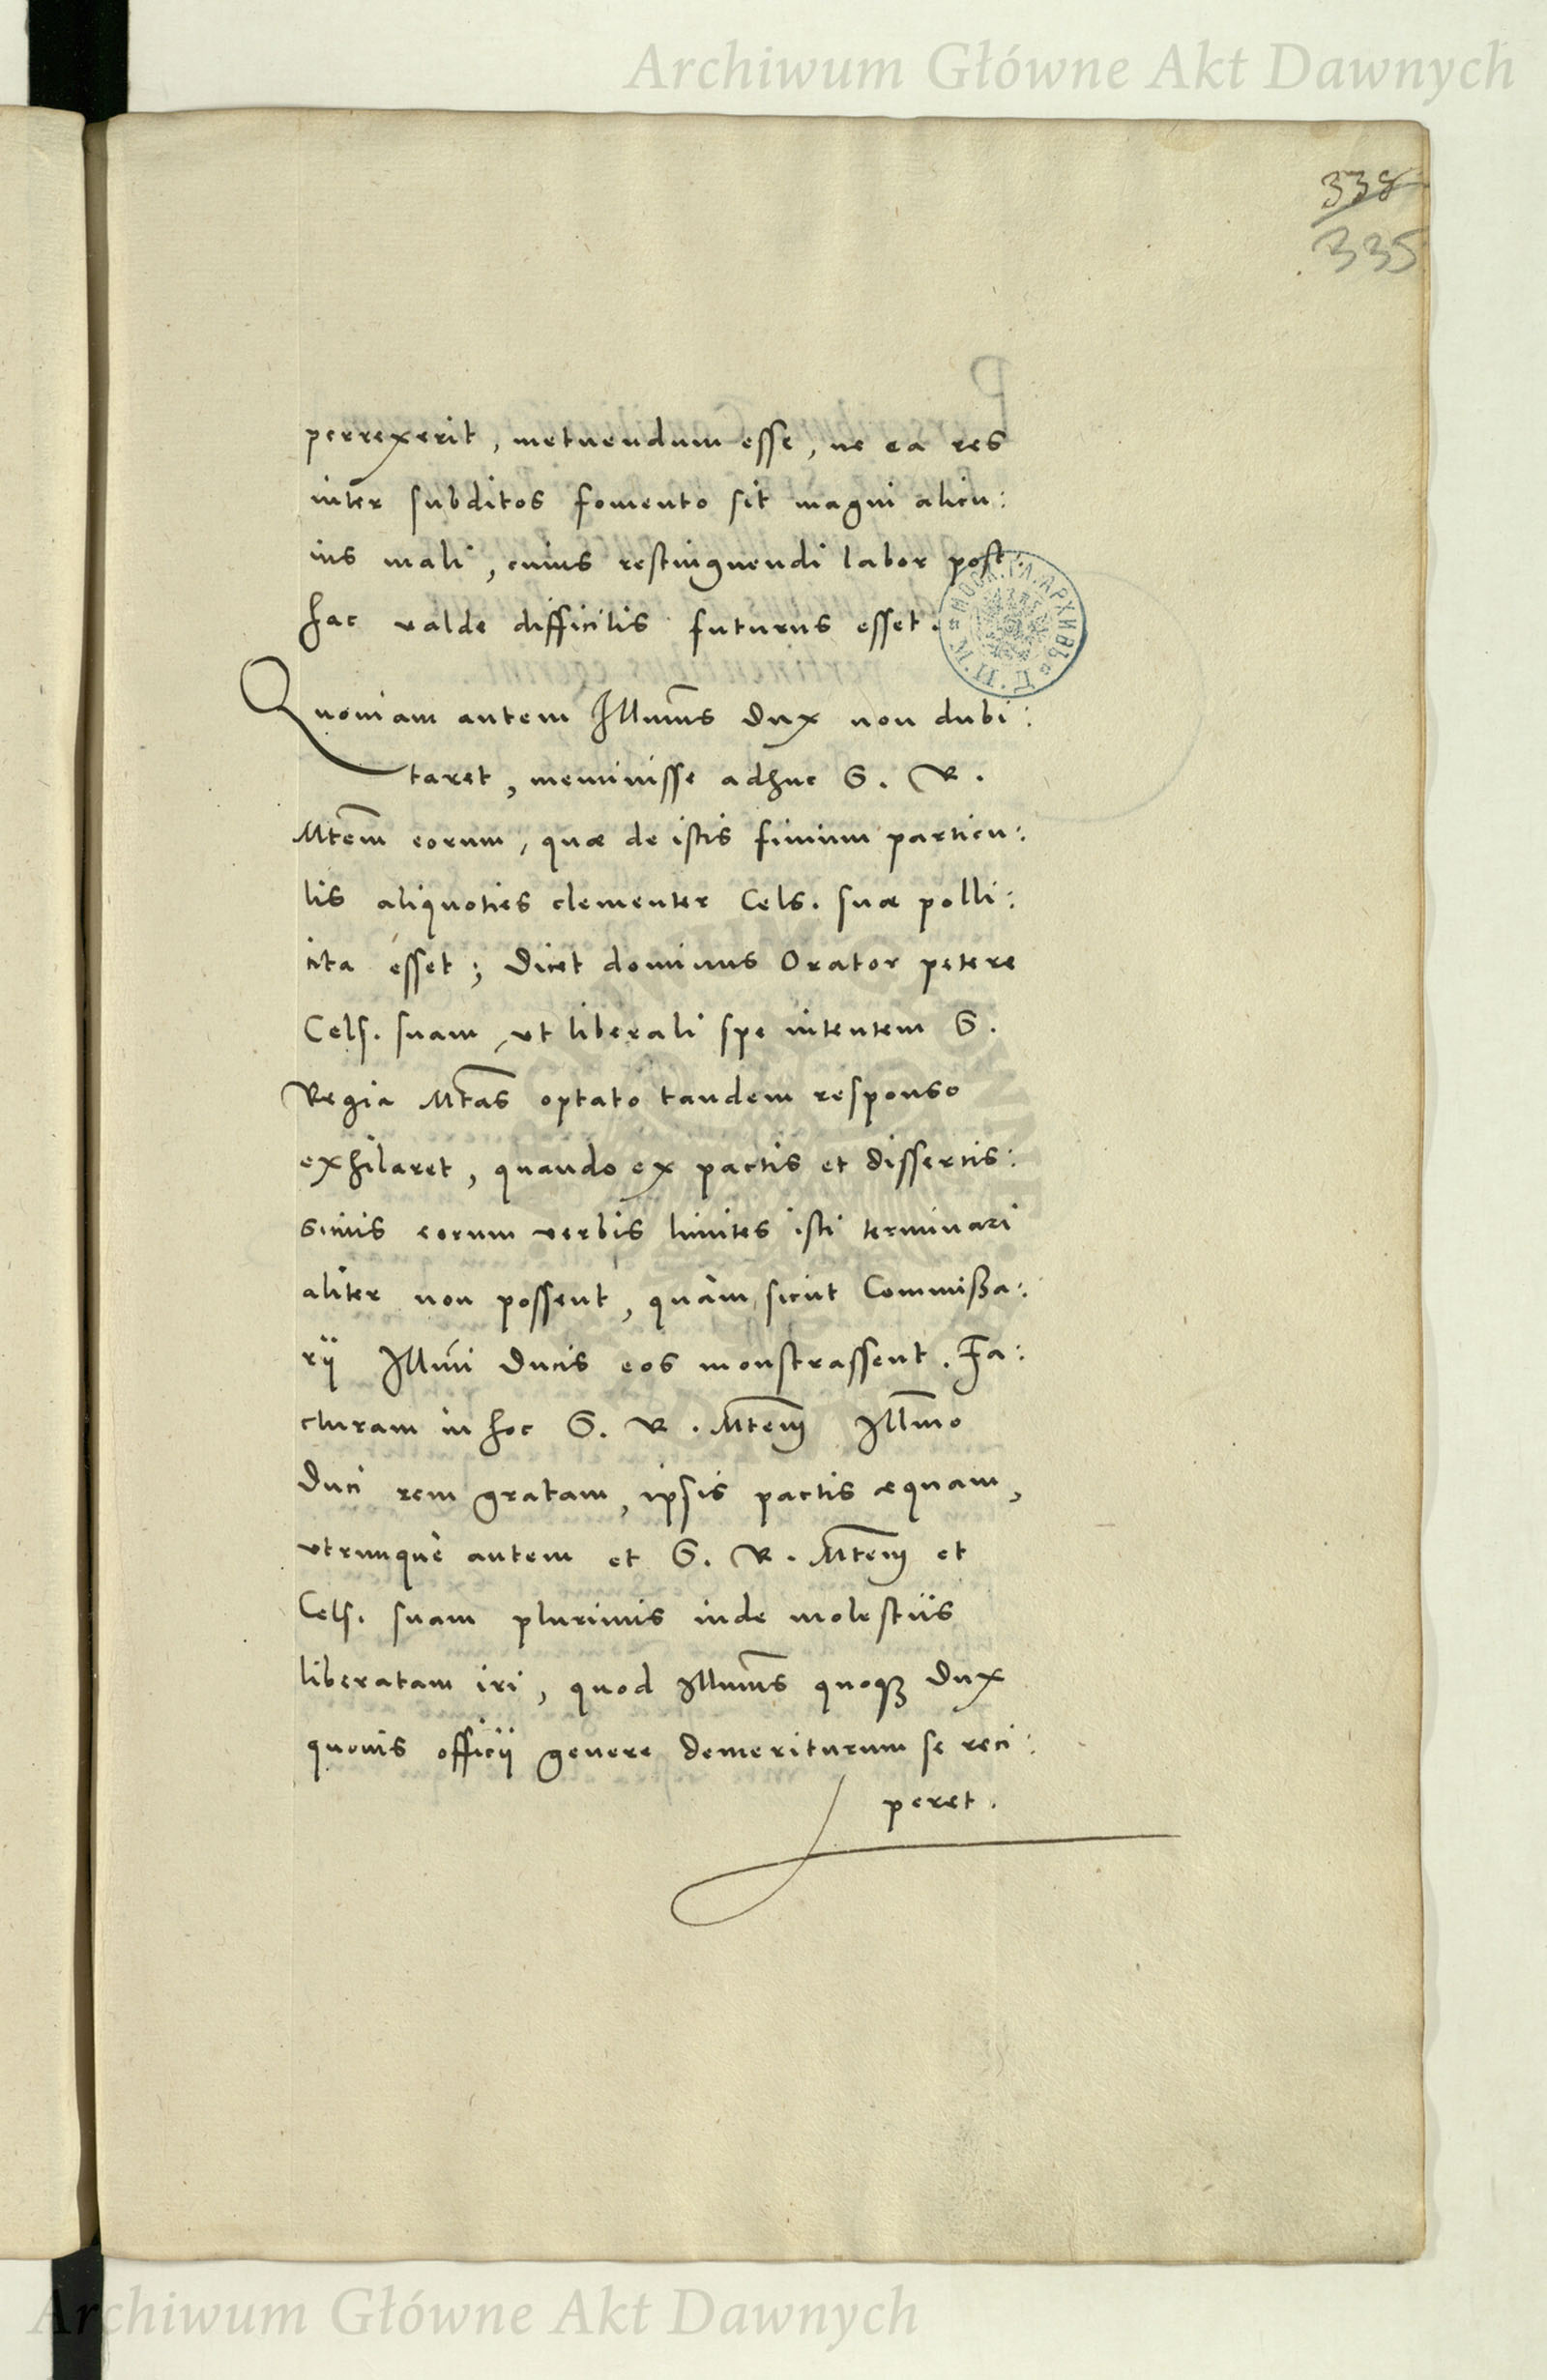 Archiwum Główne Akt Dawnych
338
335
perrexerit, metuendum esse, ne ea res
inter subditos fomento sit magni alicu:
ius mali, cuius restinguendi labor post:
hac valde difficilis futurus esset.
Quoniam autem Illumus Dux non dubi:
taret, meminisse adhuc S. R.
Mtem eorum, quæ de istis finium particu:
lis aliquoties clementer Cels. suæ polli:
cita esset; Dicet dominus Orator petere
Cels. suam, vt liberali spe intentem S.
Regia Mtas optato tandem responso
exhilaret, quando ex pactis et dissertis:
simis eorum verbis limites isti terminari
aliter non possent, quàm sicut Commißa:
rij Illmi Ducis eos monstrassent. Fa:
cturam in hoc S. R. Mtem Illmo
Duci rem gratam, ipsis pactis æquam,
vtrunque autem et S. R. Mtem et
Cels. suam plurimis inde molestiis
liberatam iri, quod Illumus quoqз Dux
quouis officij genere demeriturum se reci:
peret.
Archiwum Główne Akt Dawnych